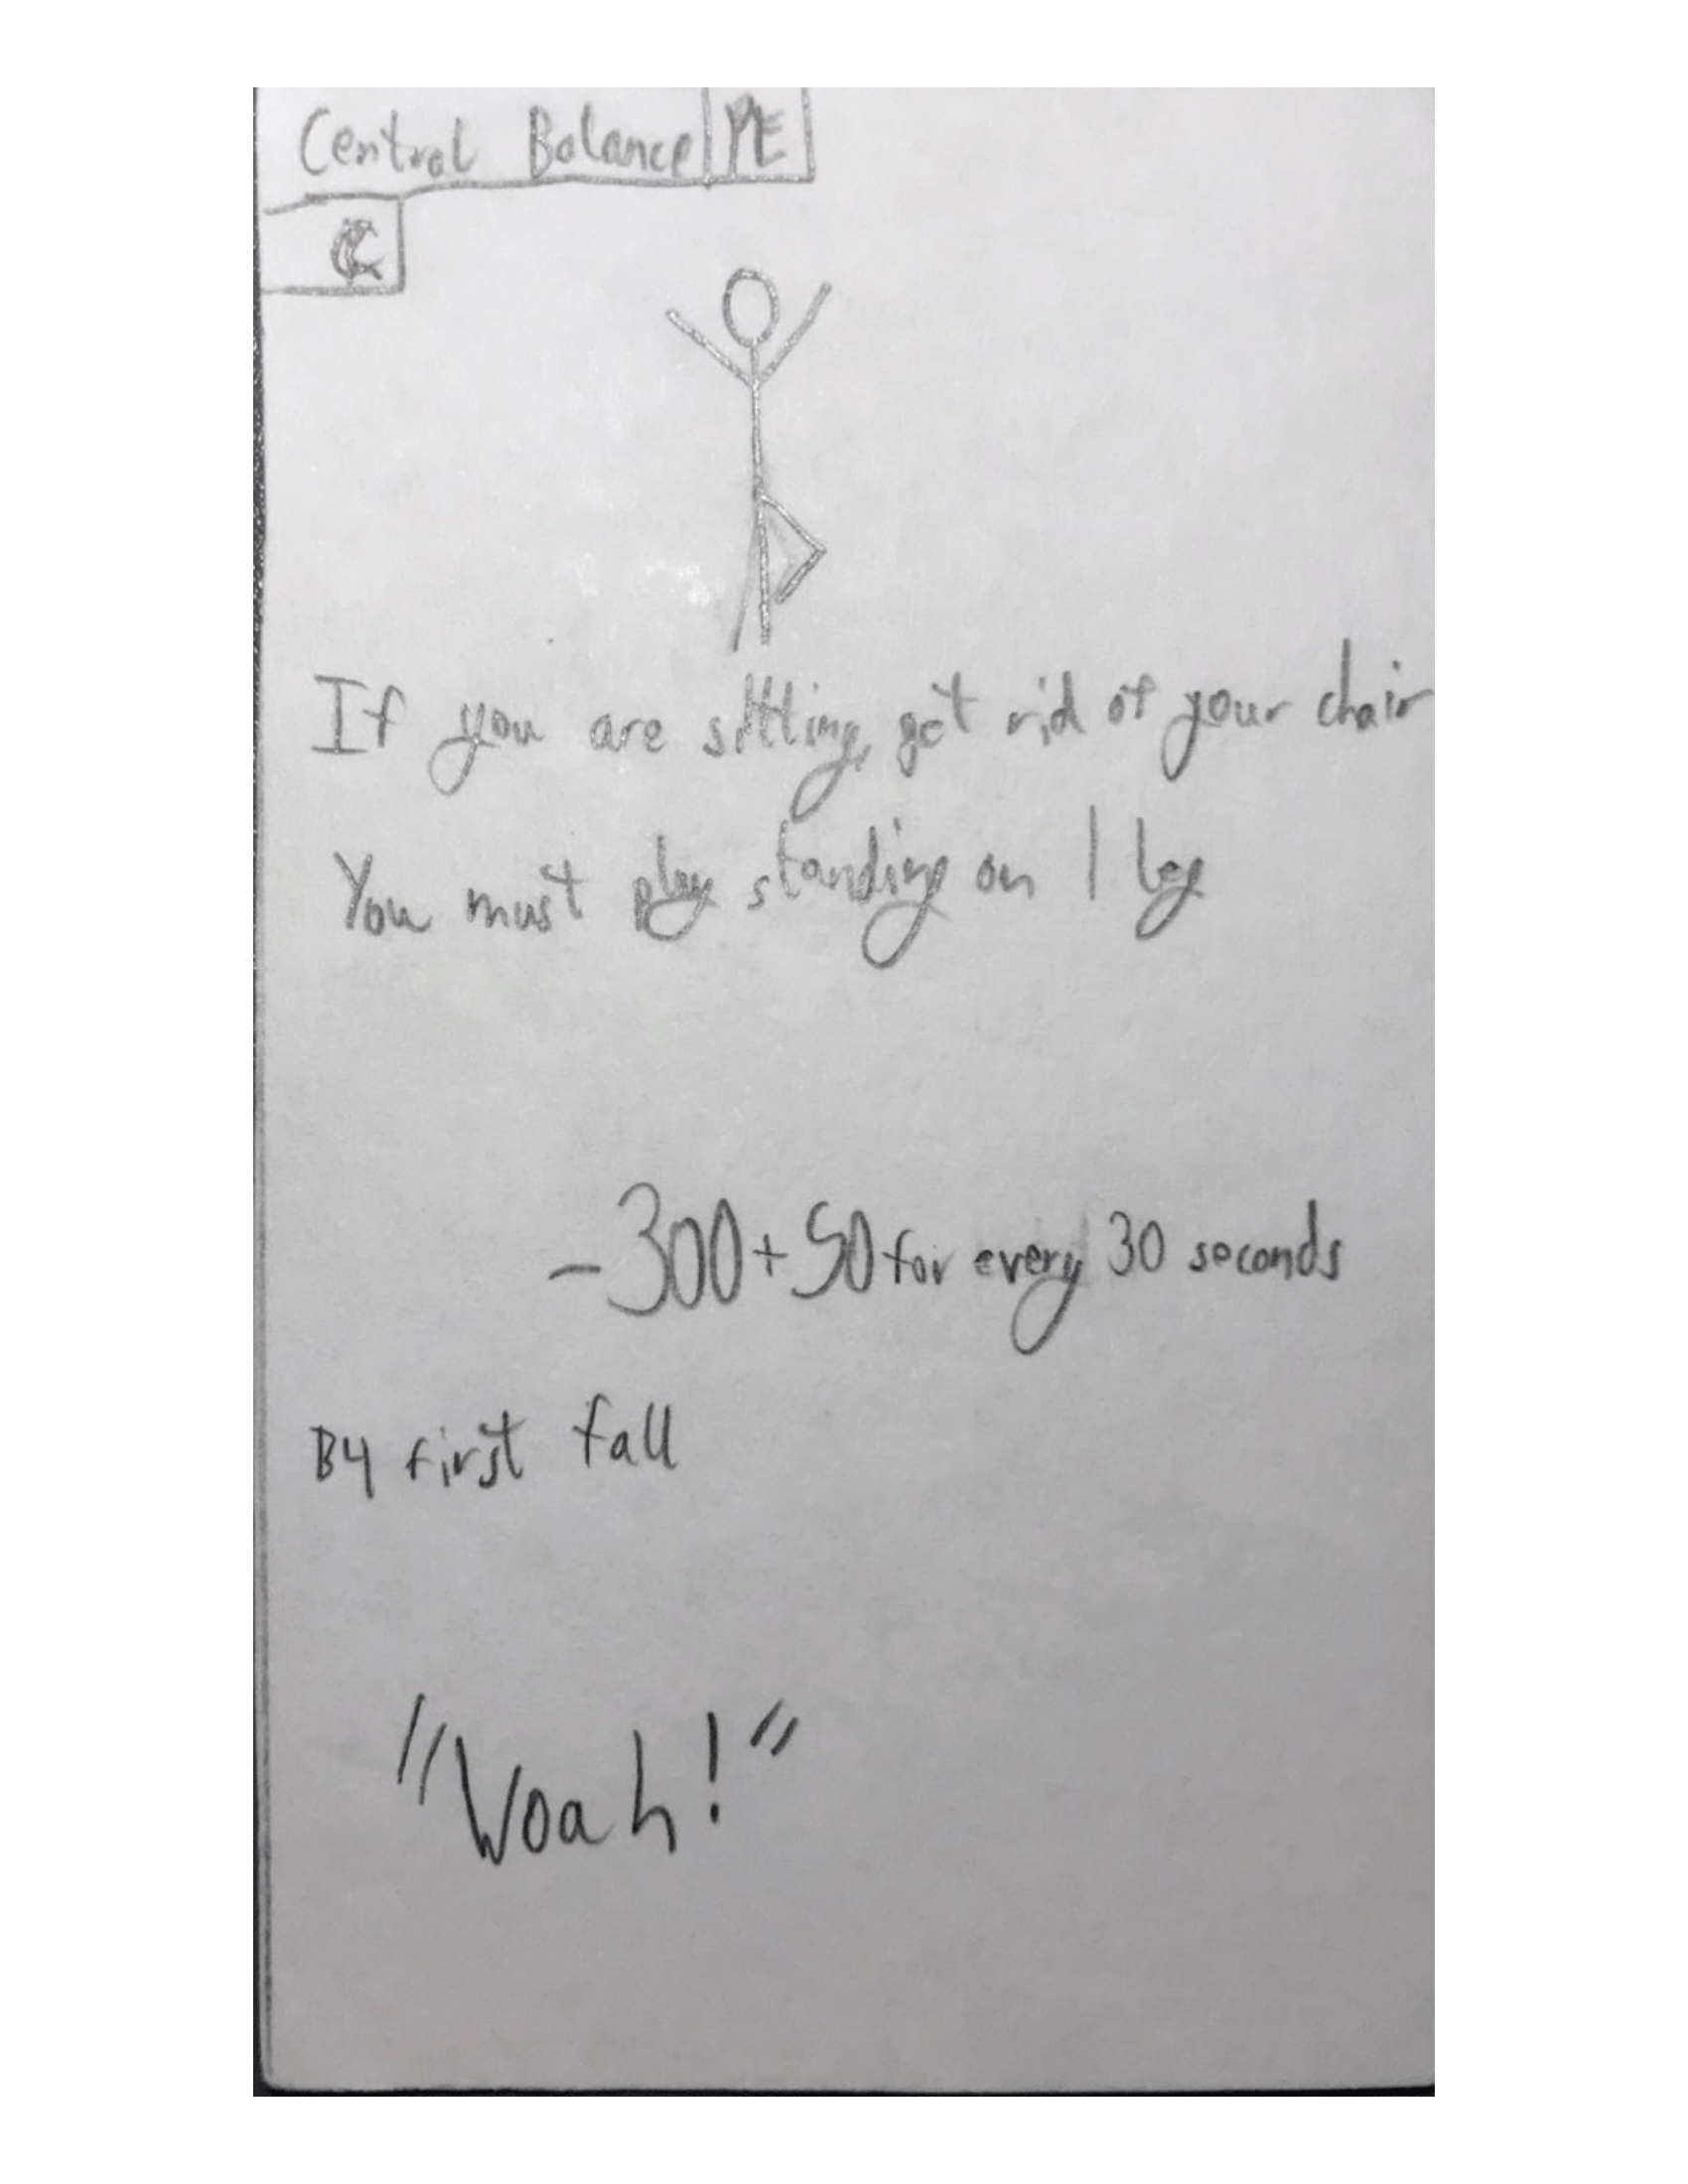 Central Balance PE
C
If you are sitting, get rid of your chair
You must play standing on 1 leg
-300+50 for every 30 seconds
By first fall
"Woah!"